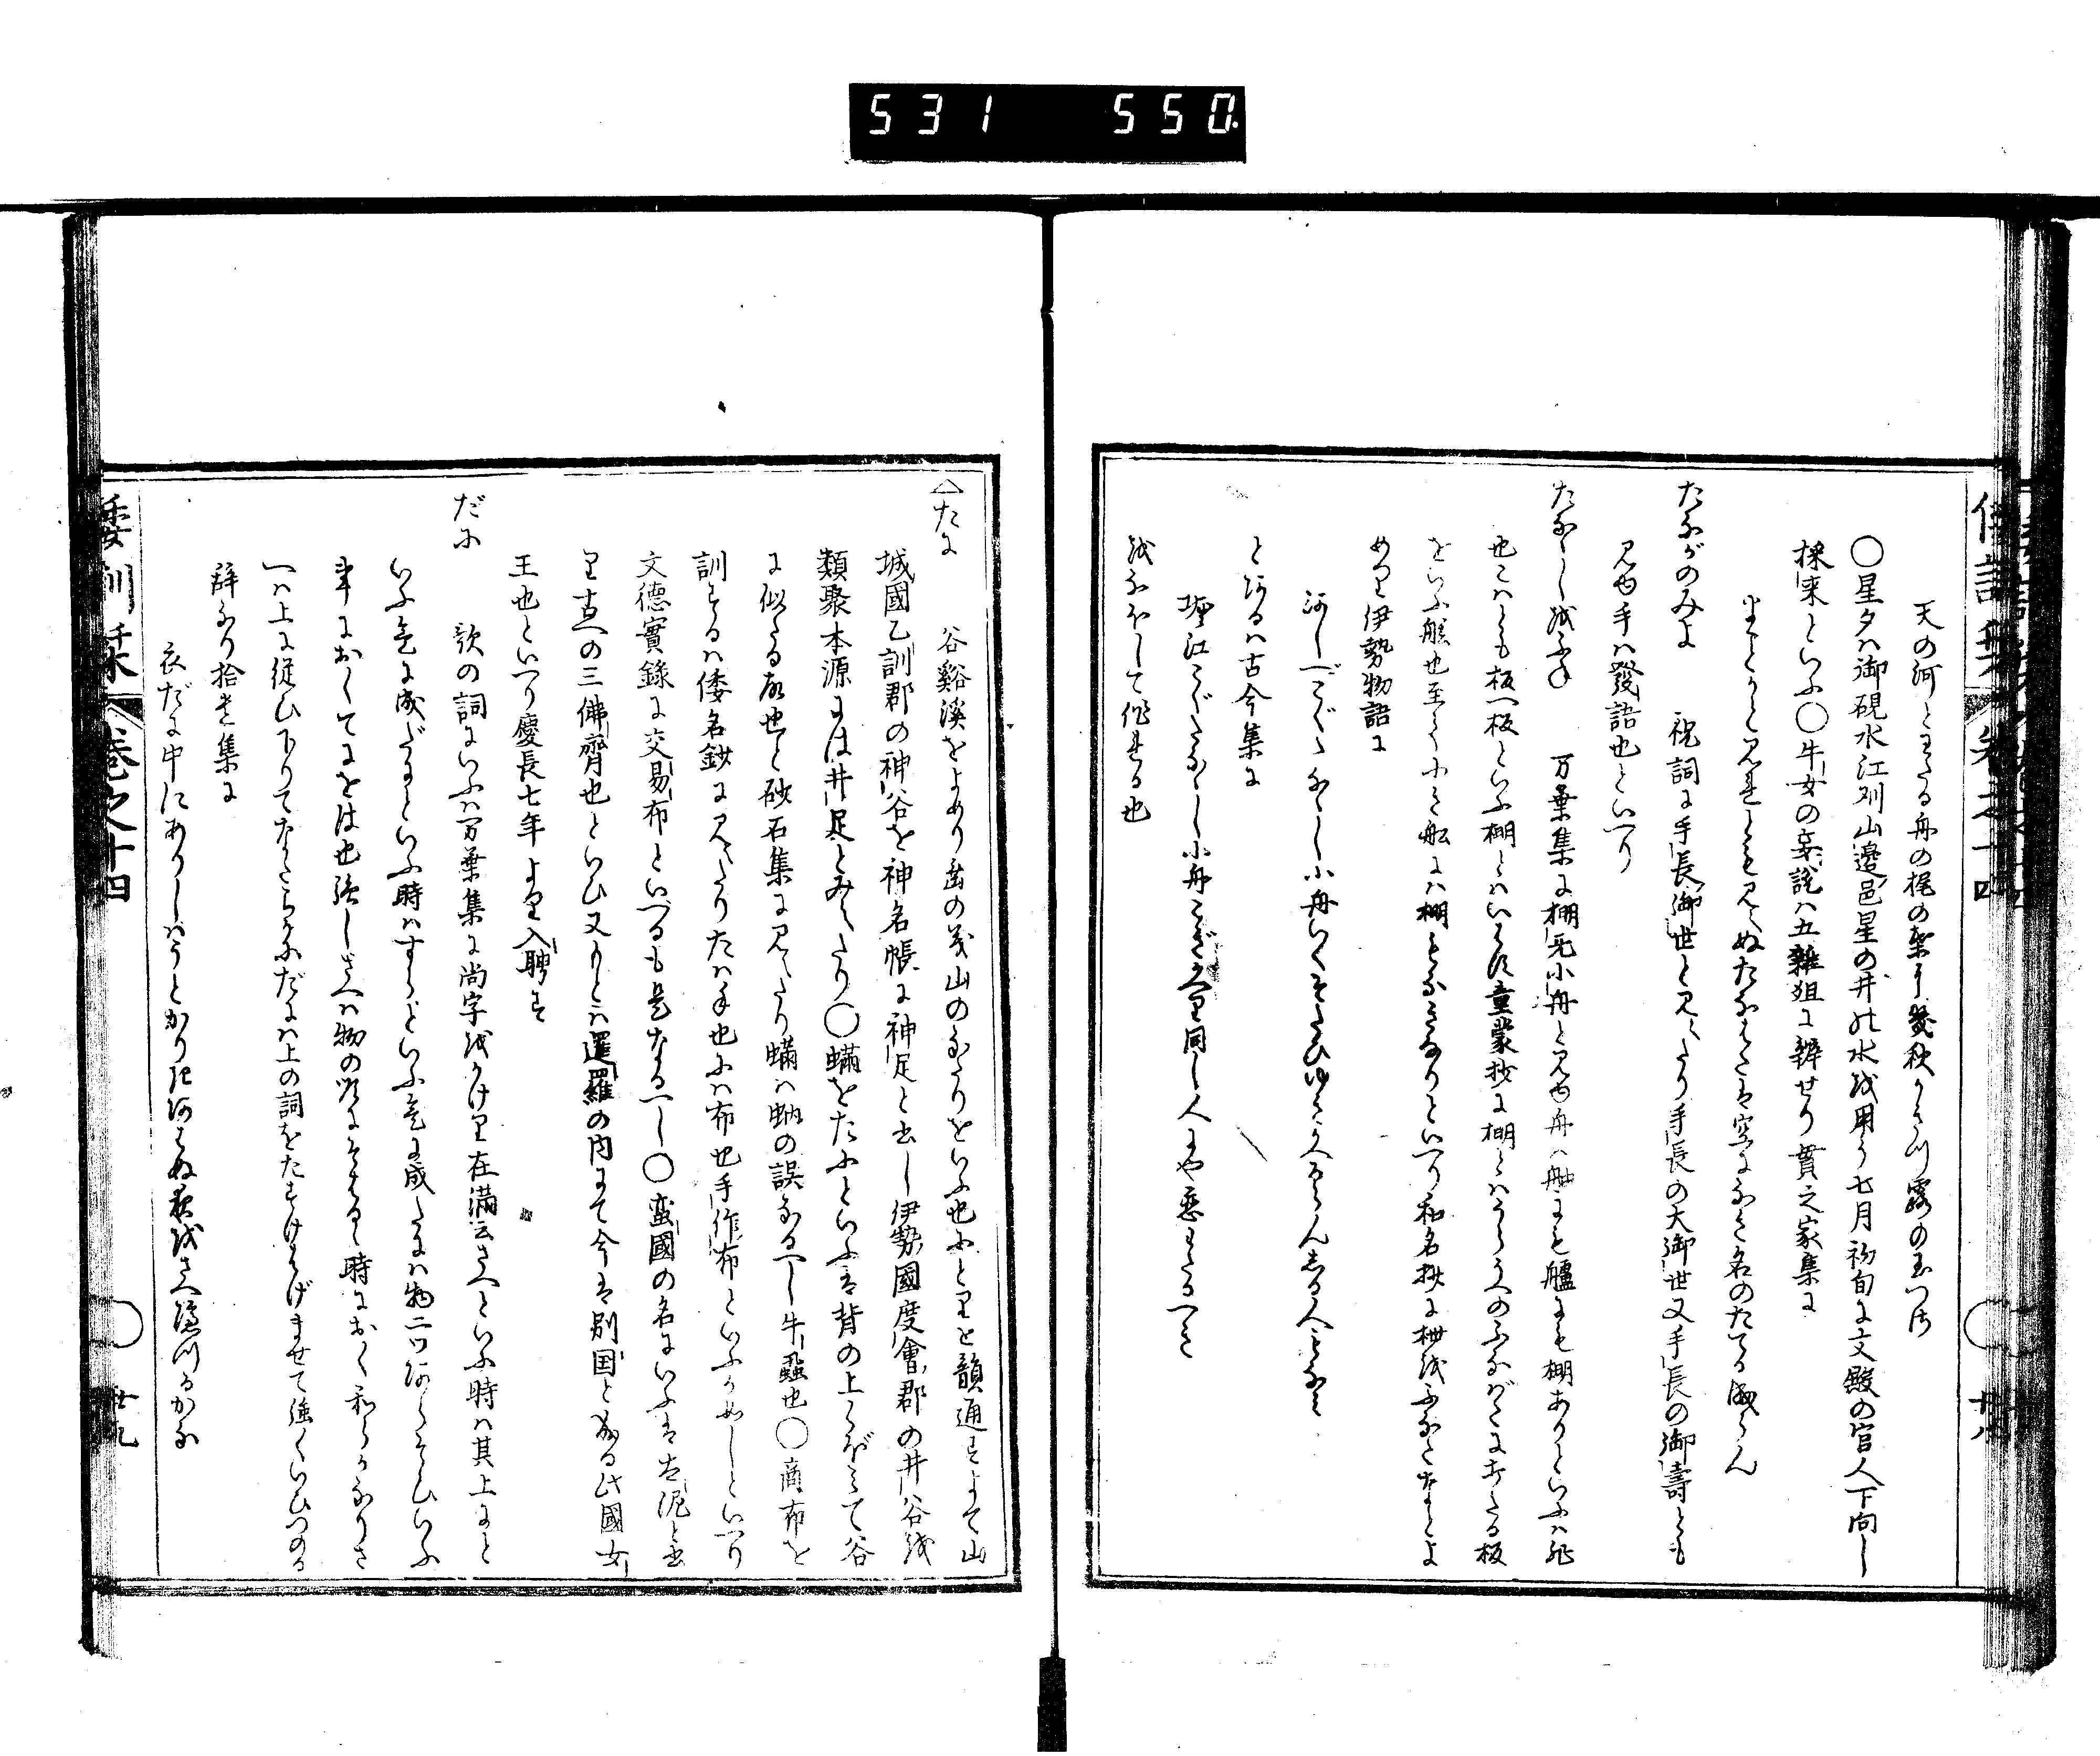 531 550
天の河とわたる舟の梶の葉に幾秋かきつ露の玉つさ
○星夕ハ御硯水江刈山邊邑星の井の水を用う七月初旬に文殿の官人下向し
採来といふ○牛女の妄説ハ五雜俎に辨せり貫之家集に
まとかと見れとも見えぬたなはたは空になき名のたてる成らん
たながのみよ 祝詞に手長御世と見えたり手長の大御世又手長の御壽とも
見ゆ手ハ發語也といへり
たなゝしをふね 万葉集に棚无小舟と見ゆ舟ハ舳にも艫にも棚ありといふハ非
也こハとも板へ板といふ棚とハいはす童蒙抄に棚とハうらうへのふなばたにあたる板
をいふ舷也至て小き船にハ棚もなきなりといへり和名抄に枻をふなたなとよ
めり伊勢物語に
あしべこぐたなゝし小舟いくそたひゆきかへるらんしる人もなみ
とあるハ古今集に
堀江こぐたなゝし小舟こぎかへり同し人にや恋わたるへき
をなほして作れる也
△たに 谷谿溪をよめり歯の義山のはたりをいふ也にとりと韻通すよて山
城國乙訓郡の神谷を神名帳に神足と書し伊勢國度會郡の井谷を
類聚本源には井足とみえたり○蟎をたにといふは背の上くぼみて谷
に似たる故也と砂石集に見えたり蟎ハ蚋の誤なるへし牛蝨也○商布を
訓するハ倭名鈔に見えたりたハ手也にハ布也手作布といふか如しといへり
文徳實録に交易布といへるも是なるへし○蛮國の名にいふは太泥と書
り古への三佛齊也といひ又もとハ暹羅の内にて今は別国と成る此國女
王也といへり慶長七年より入聘す
だに 歌の詞にいふハ万葉集に尚字をかけり在滿云さへといふ時ハ其上にと
いふ意に成だにといふ時ハすらといふ意に成たにハ物二つあらそひいふ
事におくてにをは也強しさへハ物の次にそはる時におく和らかなりさ
へハ上に従ひ下りてなたらかだにハ上の詞をたすけはげませて強くいひつのる
辞なり拾遺集に
衣だに中にありしハうとかりきあはぬ夜をさへ隔つるかな
倭訓栞 巻之十四 廿九